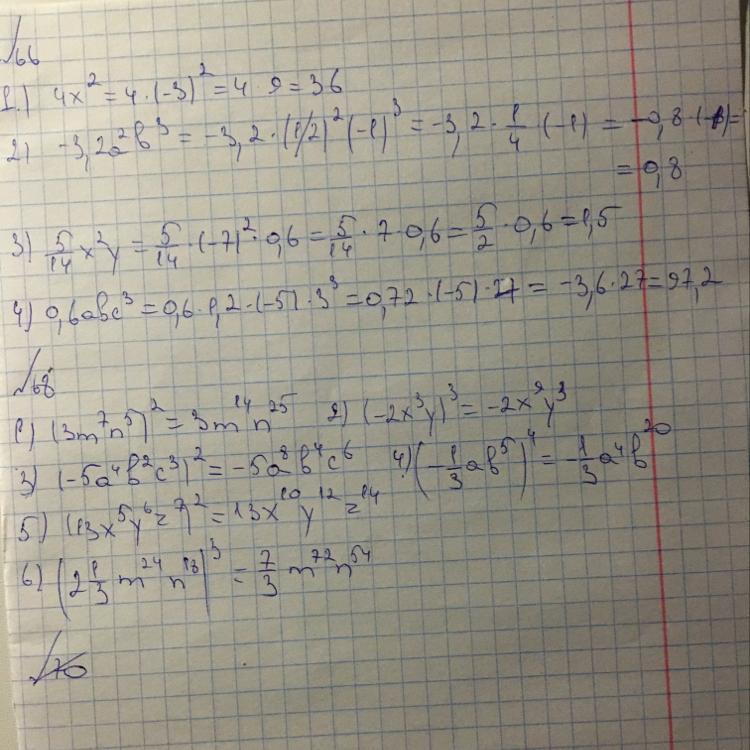 √66
1.) 4x² = 4 · (-3)² = 4 · 9 = 36
2) -3,2a²b³ = -3,2 · (1/2)² (-1)³ = -3,2 · 1/4 · (-1) = -0,8 · (-1) =
= 0,8
3) 5/14 x²y = 5/14 · (-7)² · 0,6 = 5/14 · 7 · 0,6 = 5/2 · 0,6 = 1,5
4) 0,6abc³ = 0,6 · 1,2 · (-5) · 3³ = 0,72 · (-5) · 27 = -3,6 · 27 = 97,2
√68
1) (3m⁷n⁵)² = 3m¹⁴n²⁵ 2) (-2x³y)³ = -2x⁹y³
3) (-5a⁴b²c³)² = -5a⁸b⁴c⁶ 4) (-1/3 ab⁵)⁴ = -1/3 a⁴b²⁰
5) (13x⁵y⁶z⁷)² = 13x¹⁰y¹²z¹⁴
6) (2 1/3 m²⁴n¹⁸)³ = 7/3 m⁷²n⁵⁴
√70